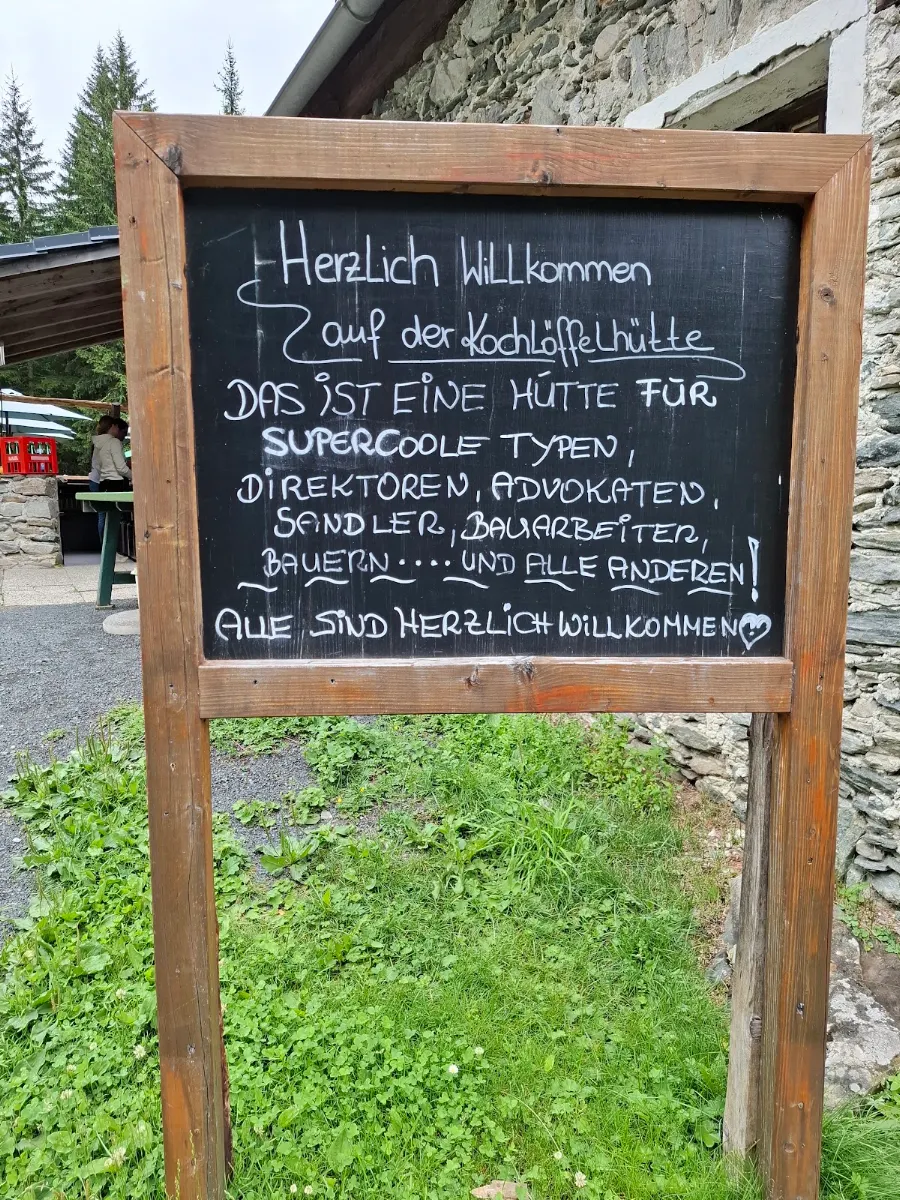 Herzlich Willkommen
auf der Kochlöffelhütte
DAS iST EiNE HÜTTE FÜR
SUPERCOOLE TYPEN,
DiREKTOREN, ADVOKATEN,
SANDLER, BAUARBEiTER,
BAUERN .... UND ALLE ANDEREN!
ALLE SiND HERZLiCH WiLLKOMMEN